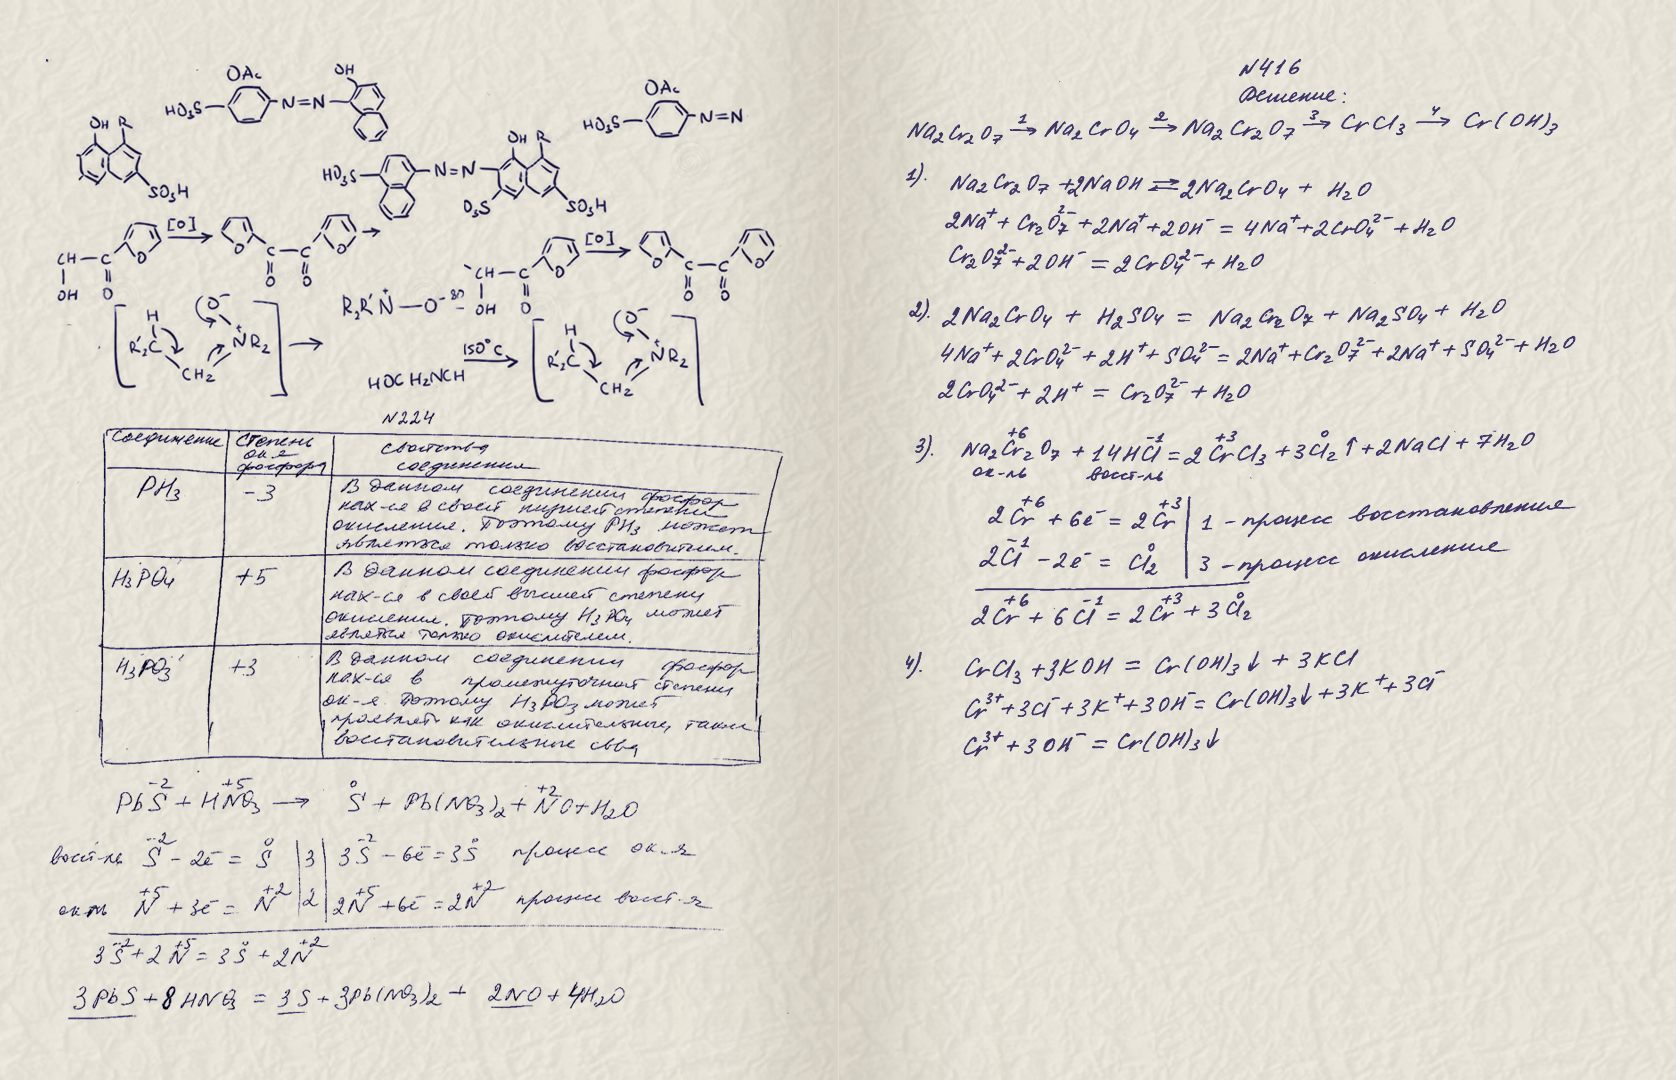 OAc
HO₃S
N=N
OH
OAc
HO₃S
N=N
OH R
SO₃H
HO₃S
N=N
OH R
O₃S
SO₃H
CH
OH
C
O
O
[O] →
O
C C
O O
O
→
CH
OH
C
O
O
[O] →
O
C C
O O
O
H
R₂'C
CH₂
O⁻
⁺NR₂
→
R₂R'N⁺—O⁻
HOCH₂NCH
150°C →
H
R₂'C
CH₂
O⁻
⁺NR₂
N224
Соединение
Степень ок-я фосфора
Свойства соединения
PH₃
-3
В данном соединении фосфор
нах-ся в своей низшей степени
окисления. Поэтому PH₃ может
являться только восстановителем.
H₃PO₄
+5
В данном соединении фосфор
нах-ся в своей высшей степени
окисления. Поэтому H₃PO₄ может
являться только окислителем.
H₃PO₃
+3
В данном соединении фосфор
нах-ся в промежуточной степени
ок-я. Поэтому H₃PO₃ может
проявлять как окислительные, так и
восстановительные св-ва
PbS⁻² + HN⁺⁵O₃ → S⁰ + Pb(NO₃)₂ + N⁺²O + H₂O
восст-ль S⁻² - 2e⁻ = S⁰ | 3 | 3S⁻² - 6e⁻ = 3S⁰ процесс ок-я
N⁺⁵ + 3e⁻ = N⁺² | 2 | 2N⁺⁵ + 6e⁻ = 2N⁺² процесс восст-я
3S⁻² + 2N⁺⁵ = 3S⁰ + 2N⁺²
3PbS + 8HNO₃ = 3S + 3Pb(NO₃)₂ + 2NO + 4H₂O
N416
Решение:
Na₂Cr₂O₇ →¹ Na₂CrO₄ →² Na₂Cr₂O₇ →³ CrCl₃ →⁴ Cr(OH)₃
1). Na₂Cr₂O₇ + 2NaOH ⇄ 2Na₂CrO₄ + H₂O
2Na⁺ + Cr₂O₇²⁻ + 2Na⁺ + 2OH⁻ = 4Na⁺ + 2CrO₄²⁻ + H₂O
Cr₂O₇²⁻ + 2OH⁻ = 2CrO₄²⁻ + H₂O
2). 2Na₂CrO₄ + H₂SO₄ = Na₂Cr₂O₇ + Na₂SO₄ + H₂O
4Na⁺ + 2CrO₄²⁻ + 2H⁺ + SO₄²⁻ = 2Na⁺ + Cr₂O₇²⁻ + 2Na⁺ + SO₄²⁻ + H₂O
2CrO₄²⁻ + 2H⁺ = Cr₂O₇²⁻ + H₂O
3). Na₂Cr⁺⁶₂O₇ + 14HCl⁻¹ = 2Cr⁺³Cl₃ + 3Cl⁰₂↑ + 2NaCl + 7H₂O
ок-ль восст-ль
2Cr⁺⁶ + 6e⁻ = 2Cr⁺³ | 1 - процесс восстановления
2Cl⁻¹ - 2e⁻ = Cl⁰₂ | 3 - процесс окисления
2Cr⁺⁶ + 6Cl⁻¹ = 2Cr⁺³ + 3Cl⁰₂
4). CrCl₃ + 3KOH = Cr(OH)₃↓ + 3KCl
Cr³⁺ + 3Cl⁻ + 3K⁺ + 3OH⁻ = Cr(OH)₃↓ + 3K⁺ + 3Cl⁻
Cr³⁺ + 3OH⁻ = Cr(OH)₃↓